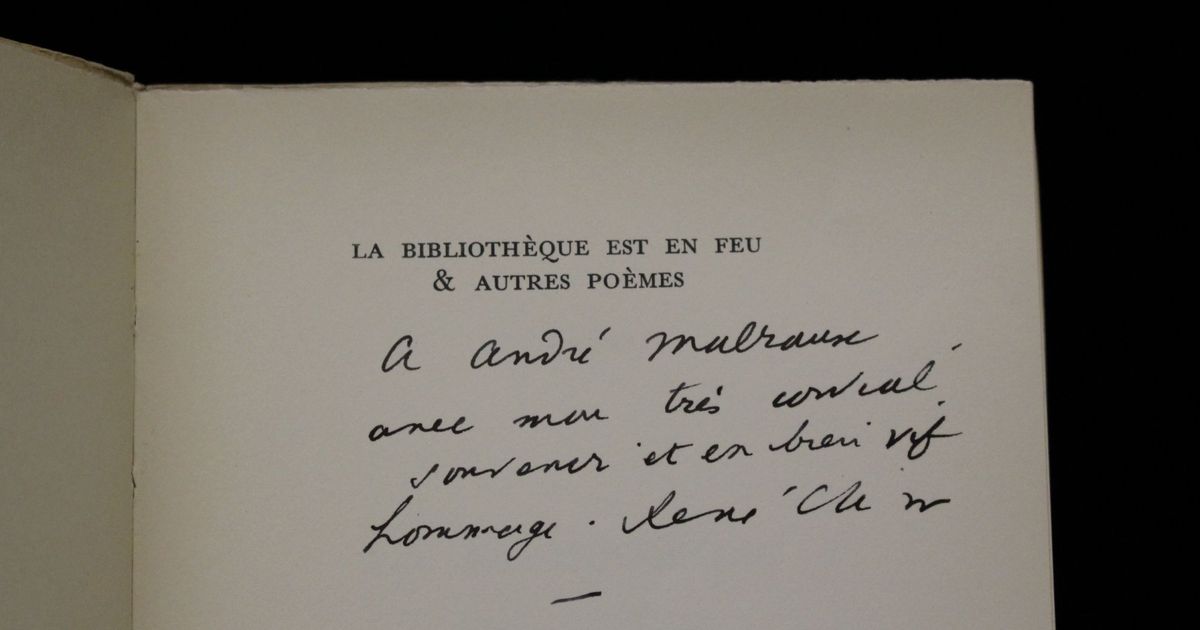 LA BIBLIOTHÈQUE EST EN FEU
& AUTRES POÈMES
A André Malraux
avec mon très cordial
souvenir et en bien vif
hommage. René Char